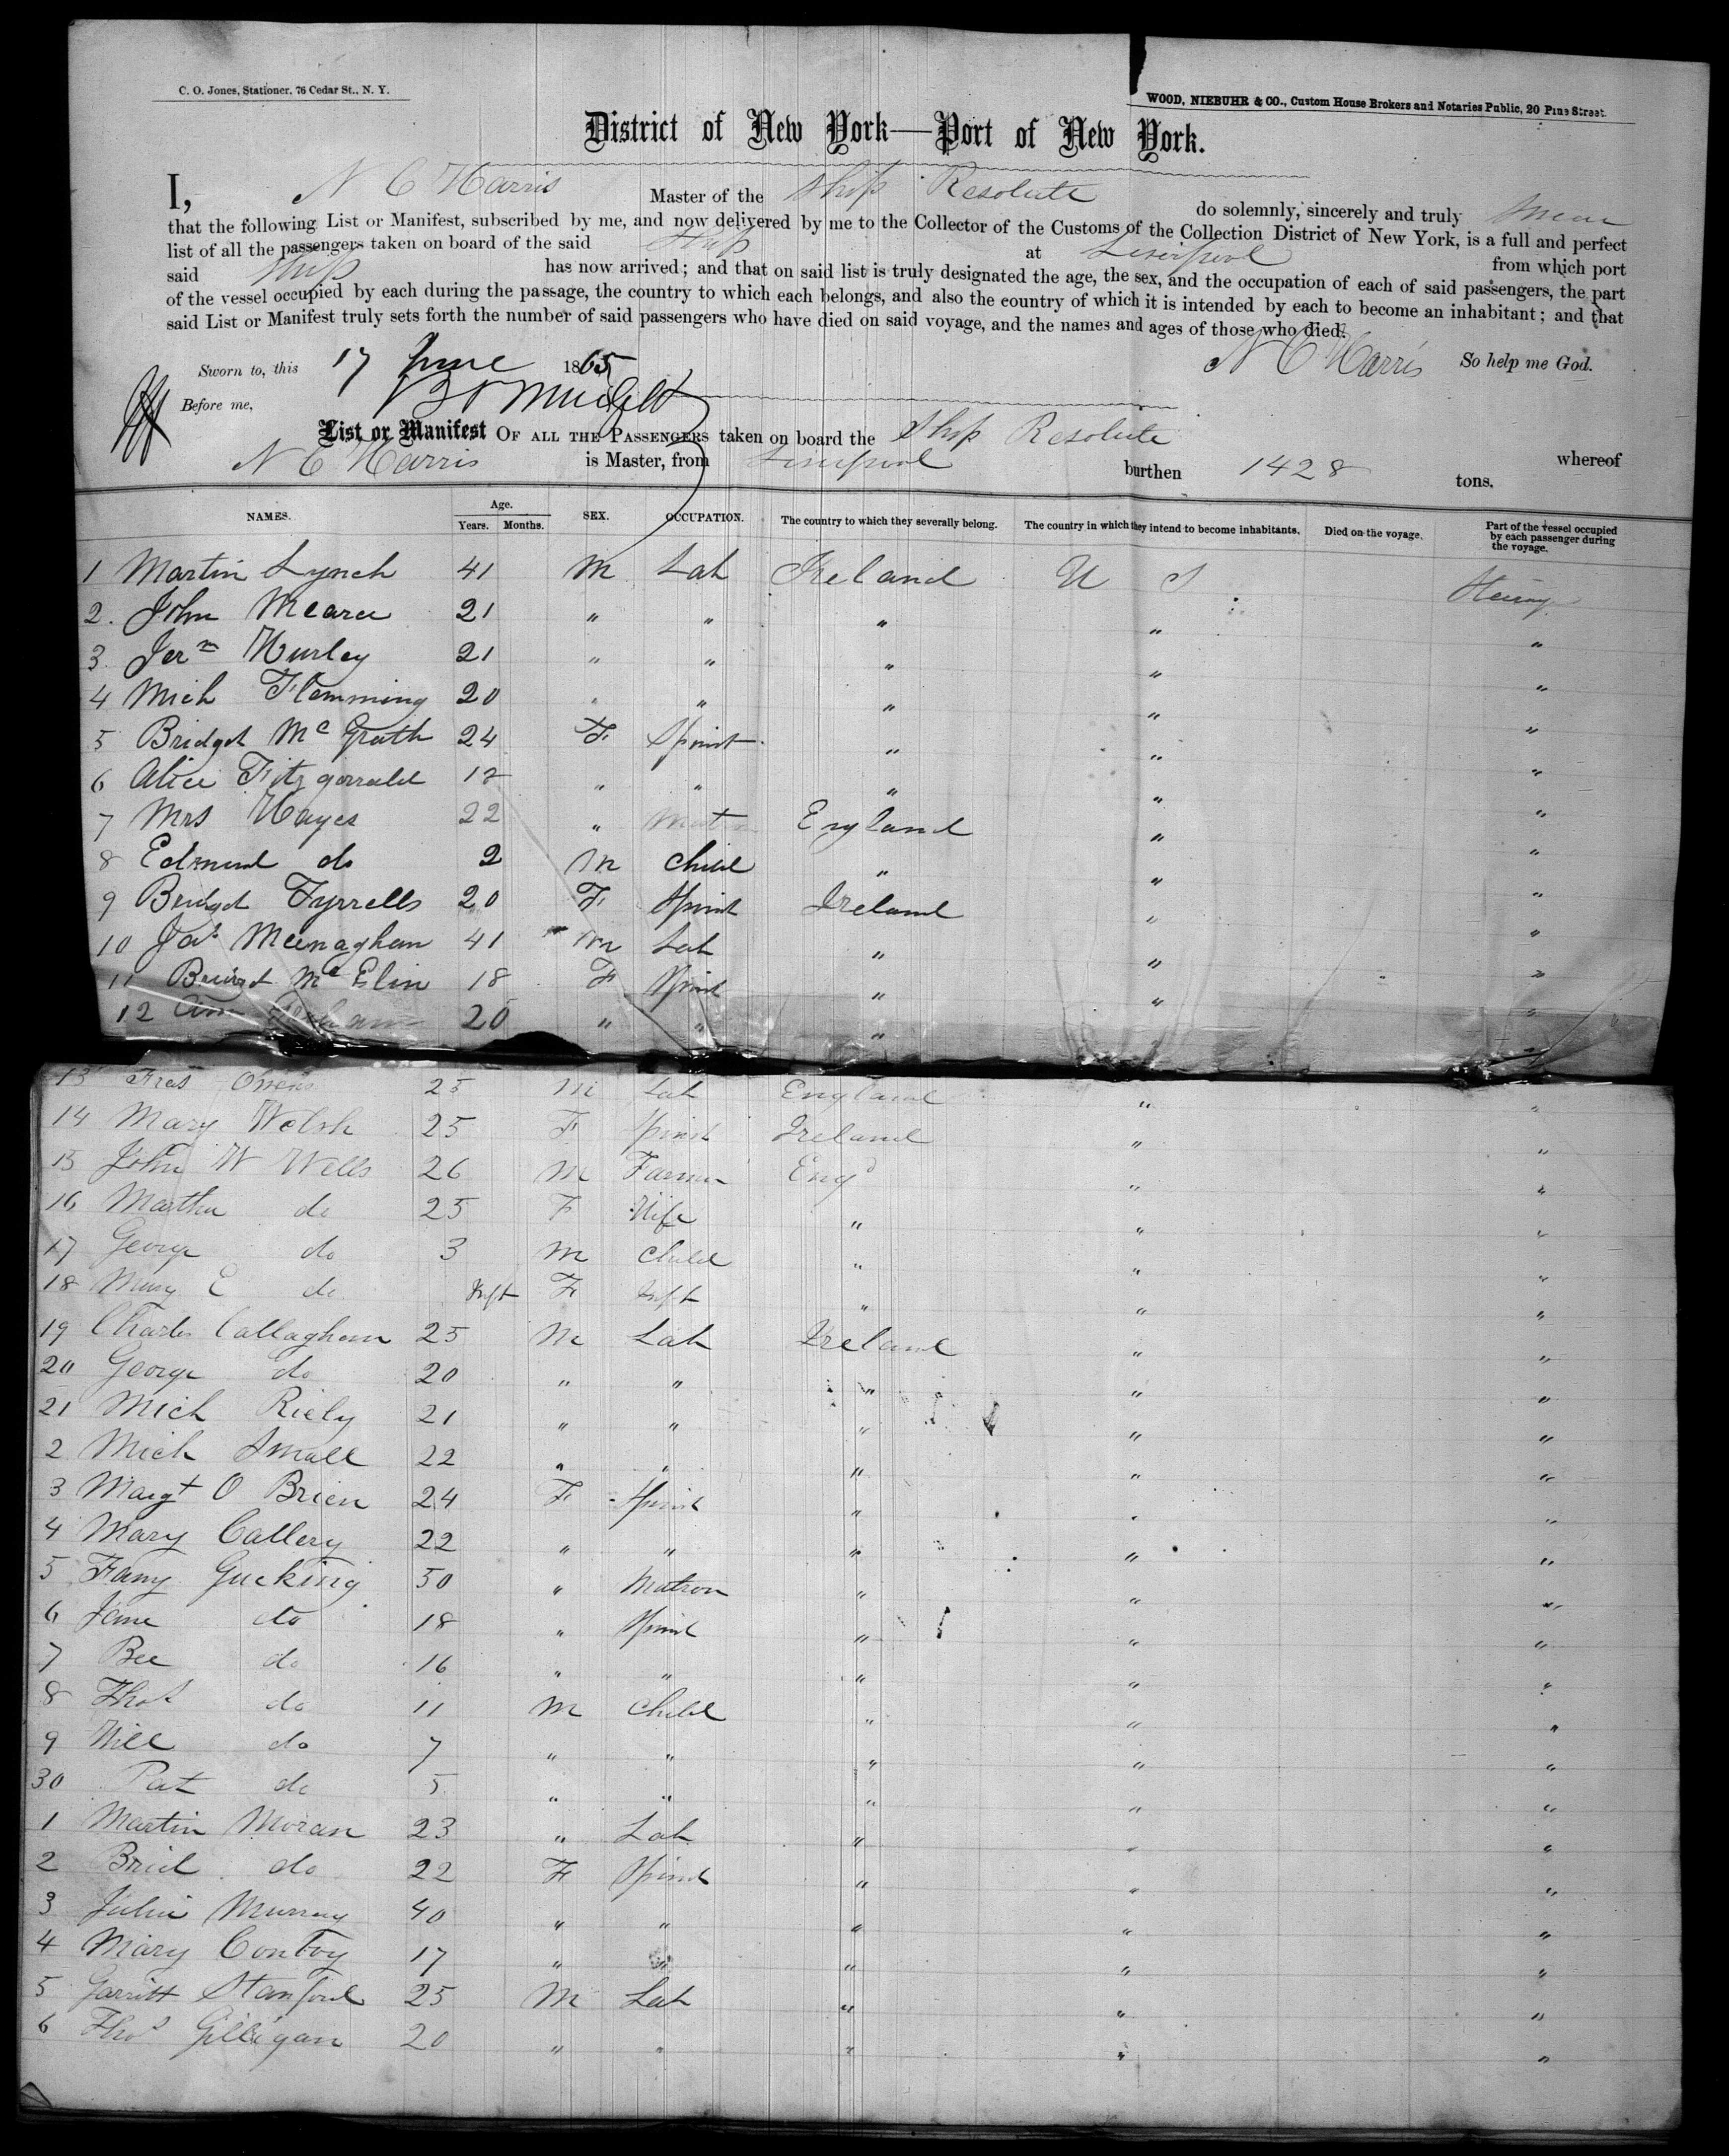 C. O. Jones, Stationer, 76 Cedar St., N. Y.
WOOD, NIEBUHR & CO., Custom House Brokers and Notaries Public, 20 Pine Street.
District of New York—Port of New York.
I, N C Harris Master of the Ship Resolute do solemnly, sincerely and truly swear
that the following List or Manifest, subscribed by me, and now delivered by me to the Collector of the Customs of the Collection District of New York, is a full and perfect
list of all the passengers taken on board of the said Ship at Liverpool from which port
said Ship has now arrived; and that on said list is truly designated the age, the sex, and the occupation of each of said passengers, the part
of the vessel occupied by each during the passage, the country to which each belongs, and also the country of which it is intended by each to become an inhabitant; and that
said List or Manifest truly sets forth the number of said passengers who have died on said voyage, and the names and ages of those who died.
Sworn to, this 17 June 1865 N C Harris So help me God.
Before me,
List or Manifest OF ALL THE PASSENGERS taken on board the Ship Resolute whereof
N C Harris is Master, from Liverpool burthen 1428 tons.
NAMES. Age. Years. Months. SEX. OCCUPATION. The country to which they severally belong. The country in which they intend to become inhabitants. Died on the voyage. Part of the vessel occupied by each passenger during the voyage.
1 Martin Lynch 41 M Lab Ireland U S
2. John Meara 21 " " " " "
3. Jerm Hurley 21 " " " " "
4 Mich Flemming 20 " " " " "
5 Bridget McGrath 24 F Spinst " " "
6 Alice Fitzgerrald 12 " " " " "
7 Mrs Hayes 22 " Matn England " "
8 Edmund do 2 M Child " " "
9 Bridget Tyrrells 20 F Spinst Ireland " "
10 Jas Meenaghan 41 M Lab " " "
11 Bridget McElin 18 F Spinst " " "
12 Ann 20 " " " "
13 Fras Owens 25 M Lab England " "
14 Mary Welsh 25 F Spinst Ireland " "
15 John W Wells 26 M Farmer Engd " "
16 Martha do 25 F Wife " " "
17 George do 3 M Child " " "
18 Mary E do Inft F Inft " " "
19 Charles Callaghan 25 M Lab Ireland " "
20 George do 20 " " " " "
21 Mich Riely 21 " " " " "
2 Mich Small 22 " " " " "
3 Margt O Brien 24 F Spinst " " "
4 Mary Callery 22 " " " " "
5 Fanny Gucking 50 " Matron " " "
6 Jane do 18 " Spinst " " "
7 Bee do 16 " " " " "
8 Thos do 11 M Child " " "
9 Will do 7 " " " " "
30 Pat do 5 " " " " "
1 Martin Moran 23 " Lab " " "
2 Brid do 22 F Spinst " " "
3 Julia Murray 40 " " " " "
4 Mary Conboy 17 " " " " "
5 Garritt Stanford 25 M Lab " " "
6 Thos Gilligan 20 " " " " "